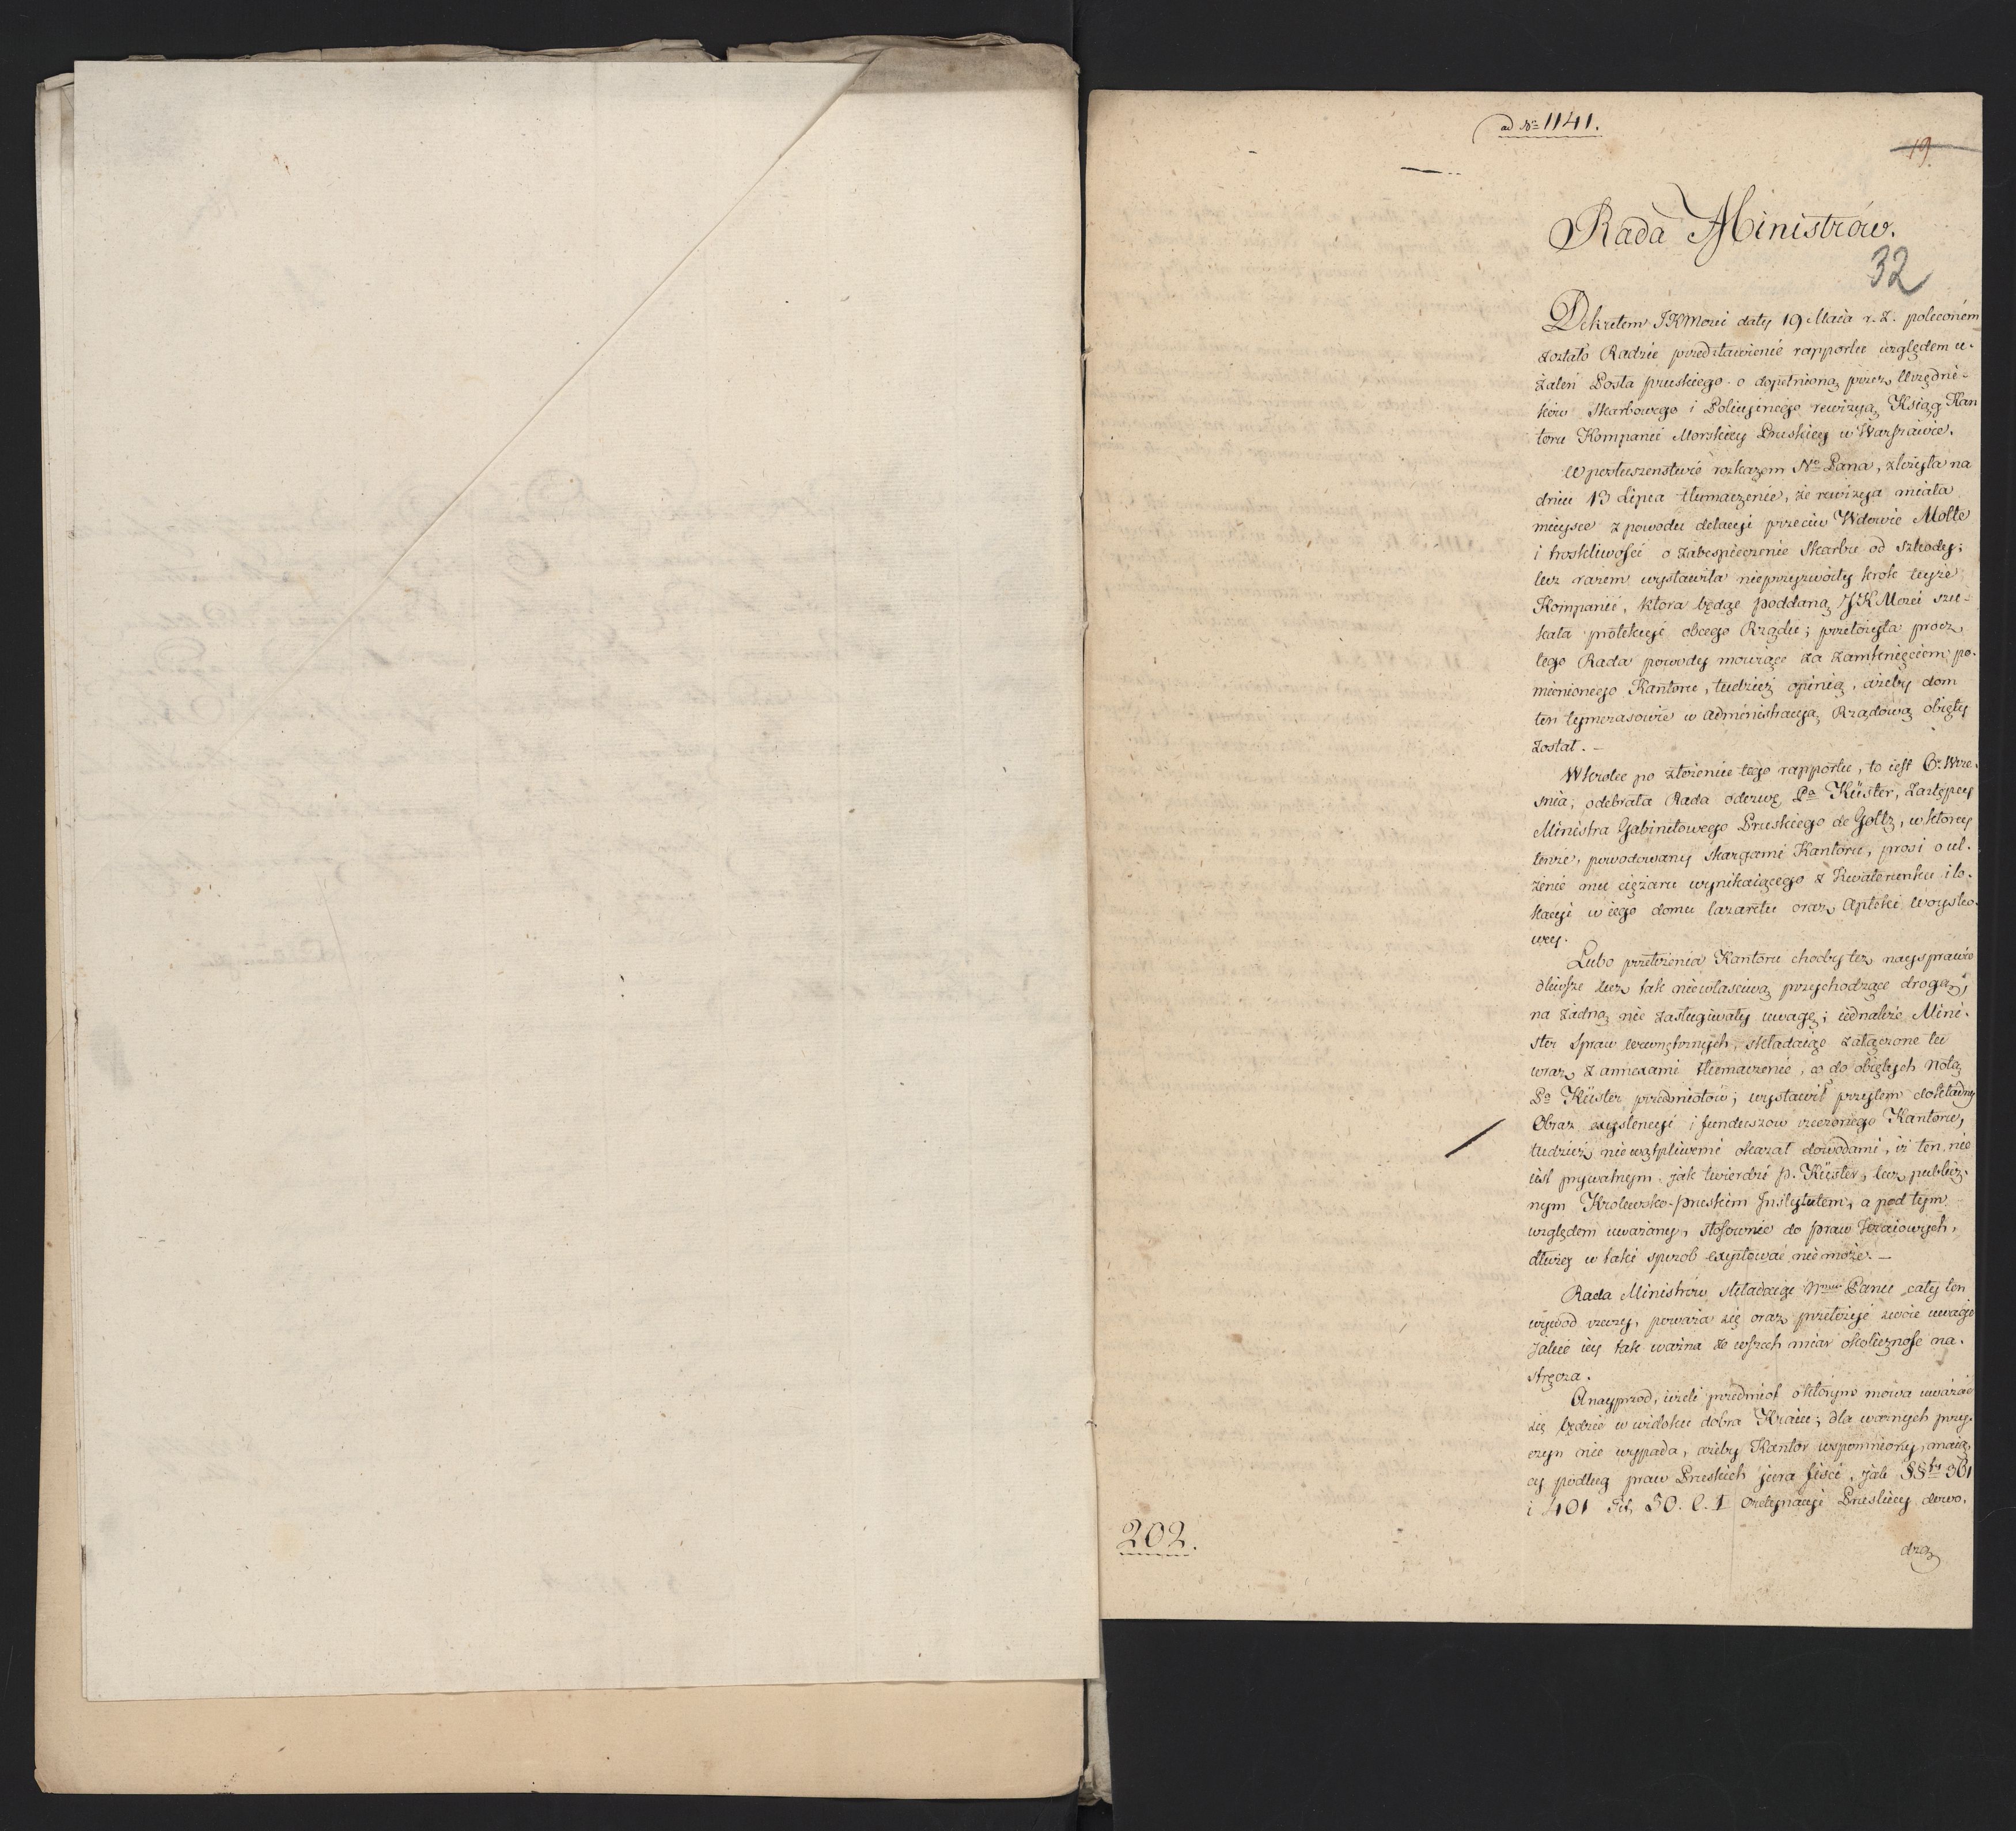 ad No 1141.
19.
Rada Ministrów.
32
Dekretem JKMosci daty 19 Maia r. z. poleconém
zostało Radzie przedstawienie rapportu względem u-
żaleń Posła pruskiego o dopełnioną przez Urzędni-
ków Skarbowego i Policyinégo rewizyą Ksiąg Kan
toru Kompanii Morskiey Pruskiey w Warszawie.
W posłuszeństwie rozkazom No Pana, złożyła na
dniu 13 Lipca tłumaczenie, że rewizya miała
mieysce z powodu delacyi przeciw Wdowie Molte
i troskliwości o zabespieczenie Skarbu od szkody;
lecz razem wystawiła nieprzyzwoity krok teyże
Kompanii, która będąc poddaną JKMosci szu-
kała protekcyi obcego Rządu; przełożyła prócz
tego Rada powody mówiące za zamknięciem po-
mienionego Kantoru, tudzież opinią, ażeby dom
ten tymczasowie w Administracyą Rządową obięty
został. —
Wkrotce po złożeniu tego rapportu, to iest 6o Wrze-
snia, odebrała Rada odezwę Pa Küster, Zastępcy
Ministra Gabinetowego Pruskiego de Goltz, w którey
tenże, powodowany skargami Kantoru, prosi o ul-
żenie mu ciężaru wynikaiącego z kwaterunku i lo-
kacyi w iego domu lazaretu oraz Apteki woysko-
wey.
Lubo przełożenia Kantoru choćby też naysprawie
dliwsze lecz tak niewłaściwą przychodzące drogą,
na żadną nie zasługiwały uwagę; iednakże Mini-
ster Spraw Wewnętrznych, składaiąc załączone tu
wraz z annexami tłumaczenie, co do obiętych notą
Pa Küster przedmiotów; wystawił przytém dokładny
Obraz exystencyi i funduszow rzeczonego Kantoru,
tudzież niewątpliwemi okazał dowodami, iż ten nie
iest prywatnym, jak twierdzi p. Küster, lecz publicz-
nym Krolewsko-pruskim Instytutem, a pod tym
względem uważany, stosownie do praw kraiowych,
dłużey w taki sposob exystować nie może. —
Rada Ministrów składaiąc Nmu Panu cały ten
wywod rzeczy, poważa się oraz przełożyć swoie uwagi
jakie iey tak ważna ze wszech miar okoliczność na-
stręcza.
A nayprzod, ieżeli przedmiot o którym mowa uważać
się będzie w widoku dobra Kraiu; dla ważnych przy-
czyn nie wypada, ażeby Kantor wspomniony, maią-
cy podług praw Pruskich jura fisci, jak §§fy 361
i 401 Tit. 50. C. I Ordynacyi Pruskiey dowo-
dzą
202.